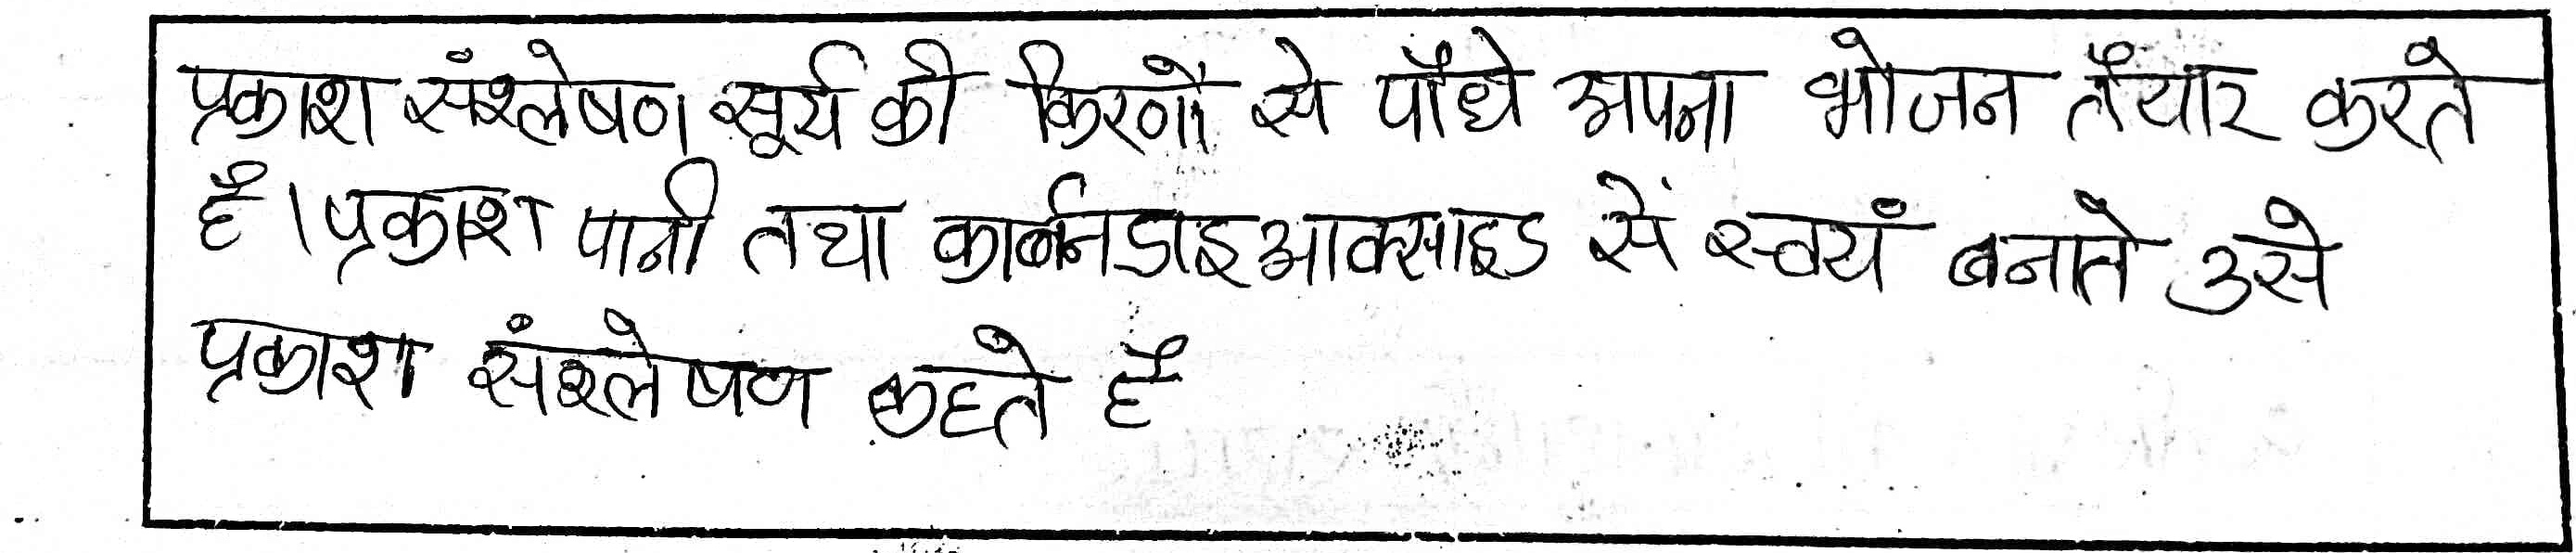 प्रकाश संश्लेषण सूर्य की किरणों से पौधे अपना भोजन तैयार करते
हैं। प्रकाश पानी तथा कार्बनडाइआक्साइड सें स्वयं बनाते उसे
प्रकाश संश्लेषण कहते हैं